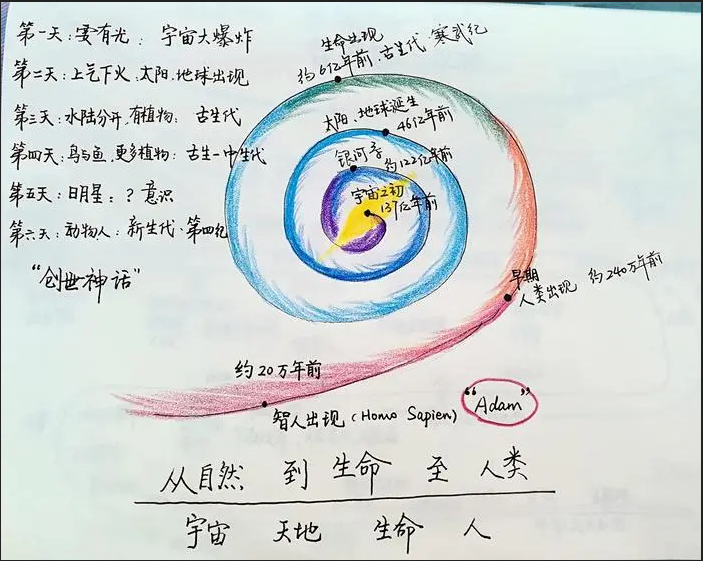 第一天：要有光：宇宙大爆炸
第二天：上气下火、太阳、地球出现
第三天：水陆分开，有植物：古生代
第四天：鸟与鱼，更多植物：古生-中生代
第五天：日月星：？意识
第六天：动物人：新生代·第四纪
“创世神话”
生命出现
约6亿年前、古生代·寒武纪
太阳、地球诞生
46亿年前
银河系
约122亿年前
宇宙之初
137亿年前
早期
人类出现 约240万年前
约20万年前
智人出现（Homo Sapien）
“Adam”
从自然 到 生命 至 人类
宇宙 天地 生命 人